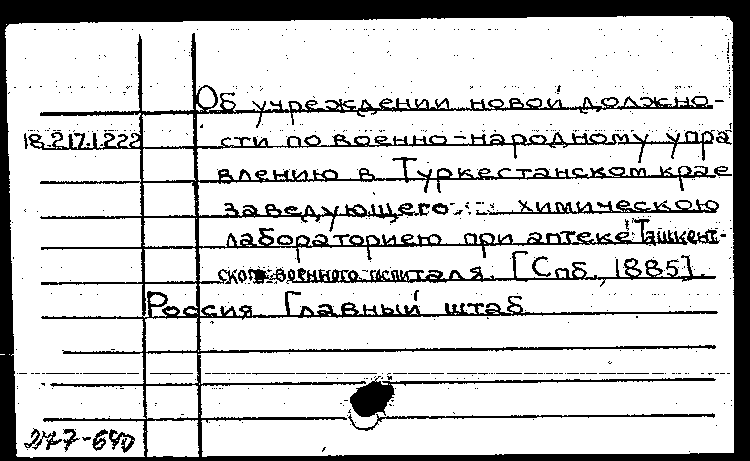 Об учреждении новой должно-
18.217.1.222 сти по военно-народному упра
влению в Туркестанском крае
заведующего химическою
лабораториею при аптеке Ташкент-
ского военного госпиталя. [Спб., 1885].
Россия. Главный штаб
217-640